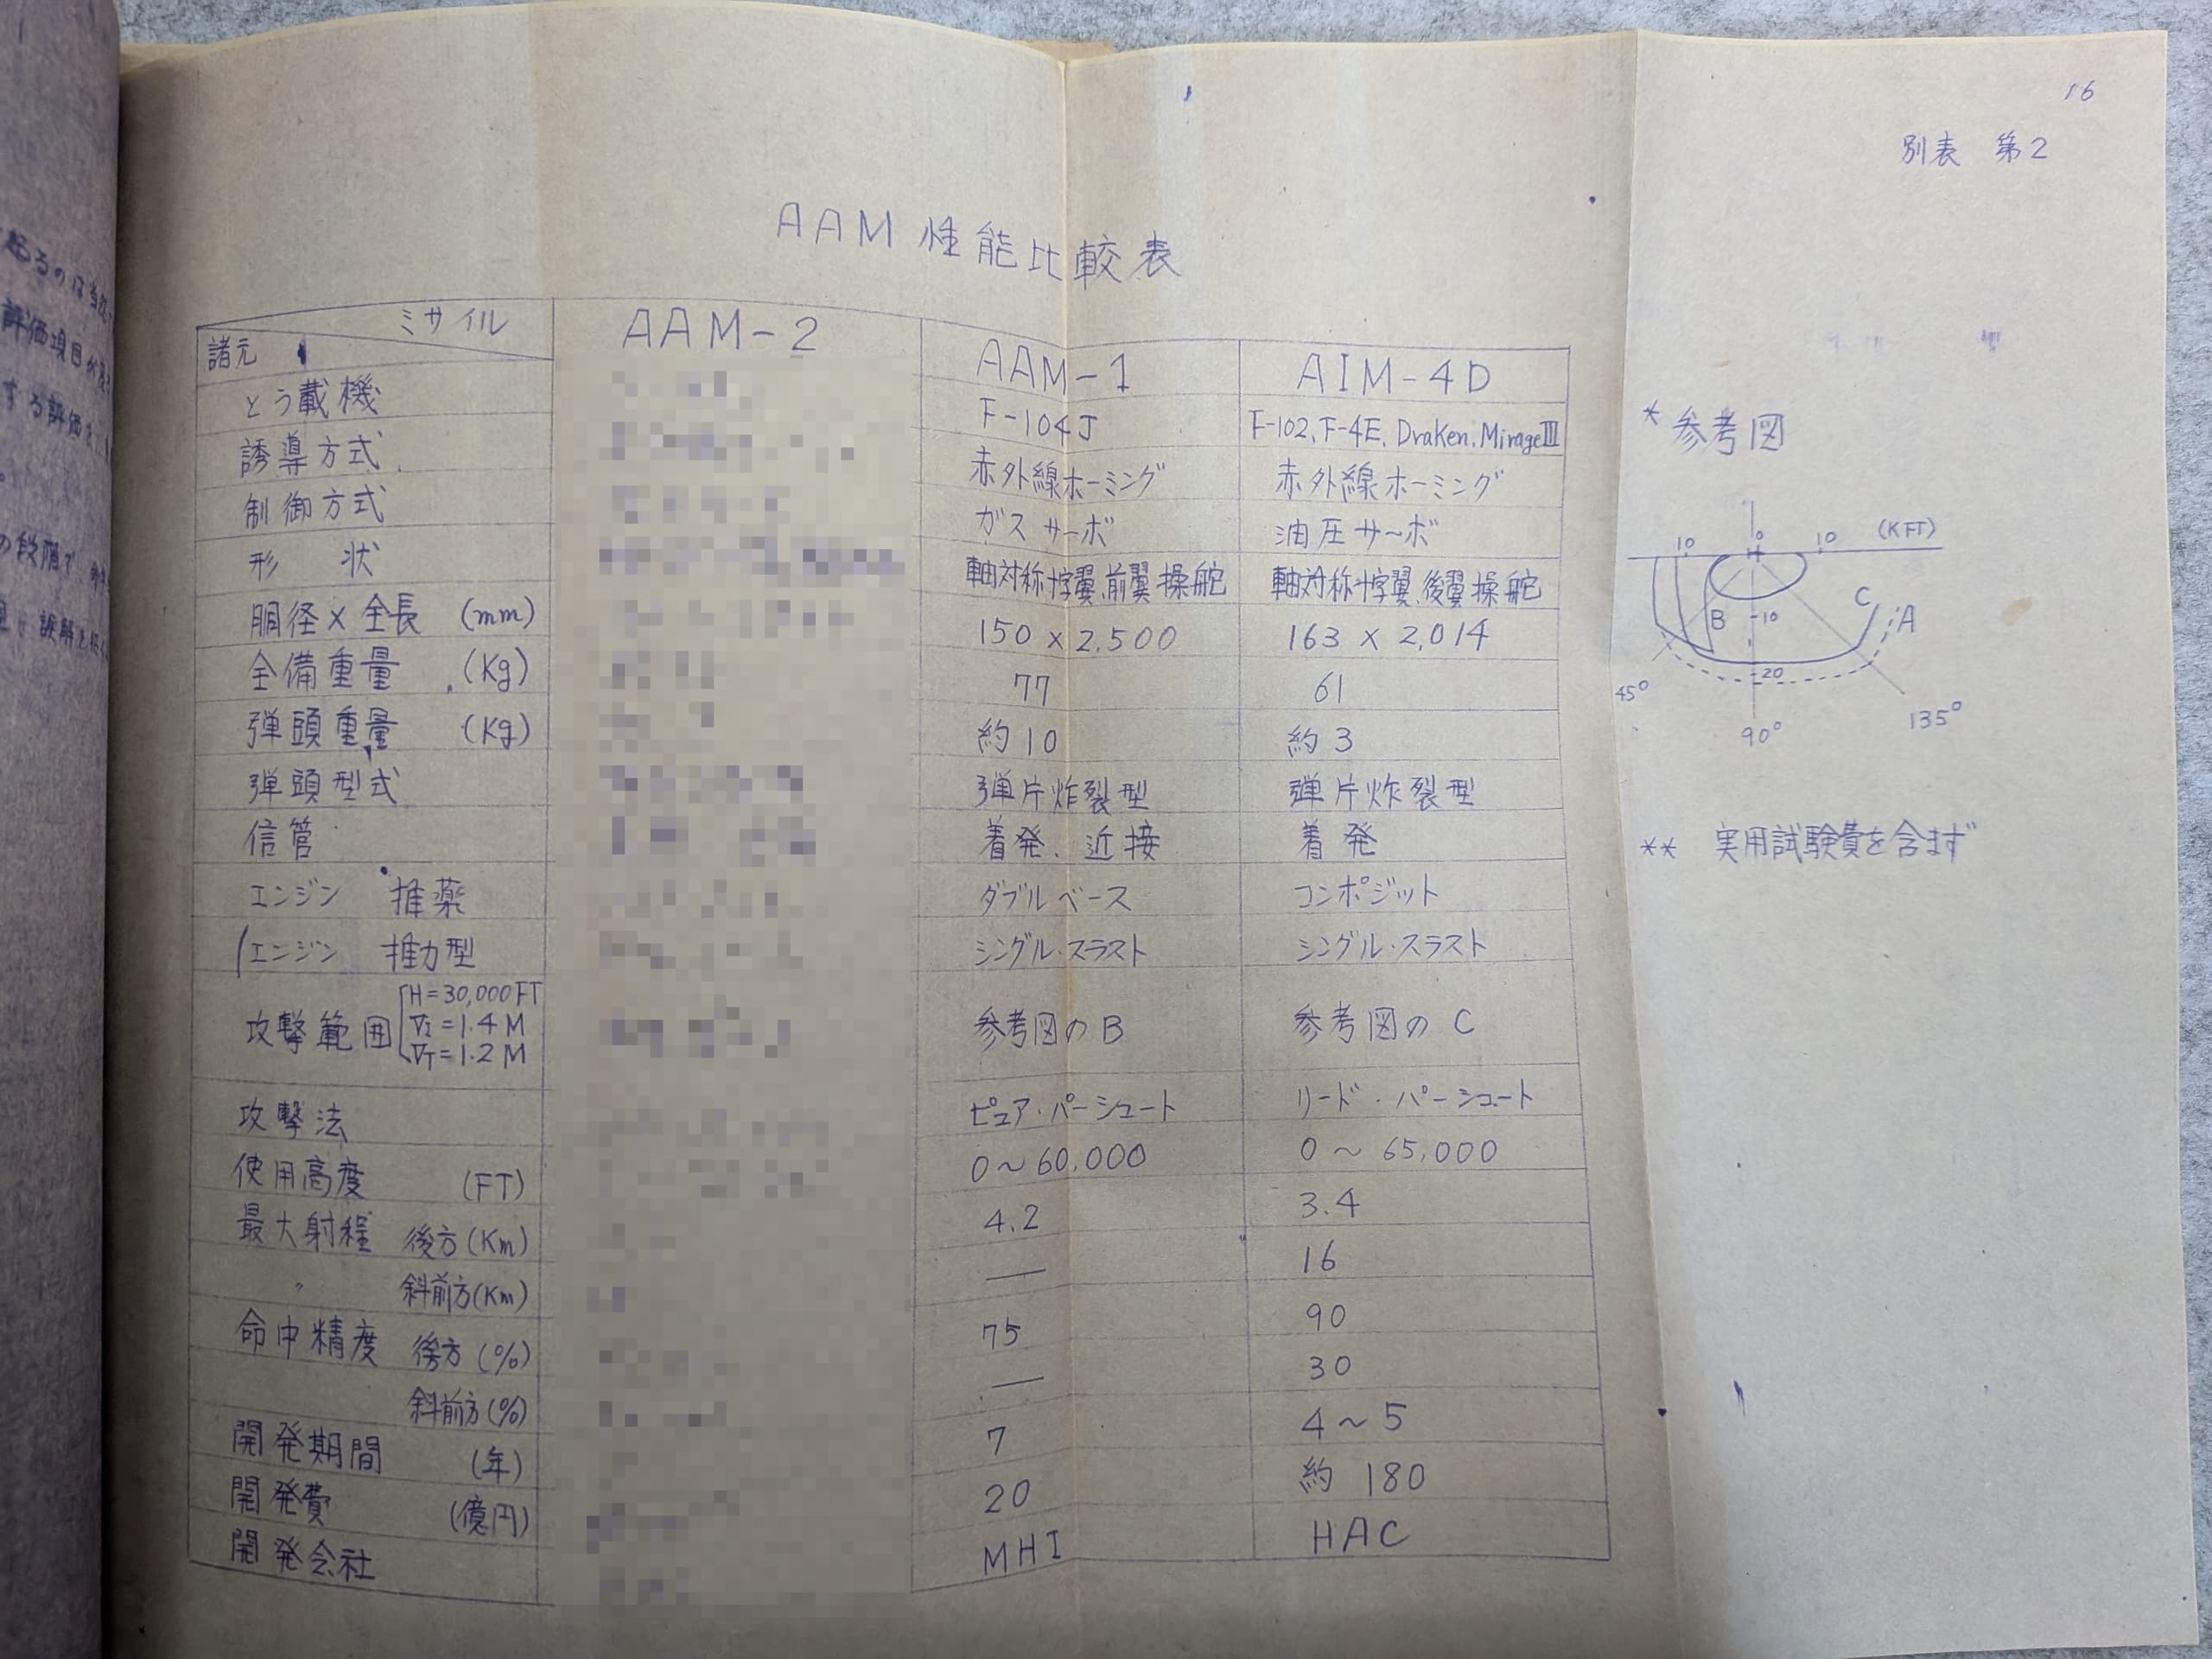 16
別表 第2
AAM 性能比較表
諸元 ミサイル AAM-2 AAM-1 AIM-4D
とう載機 F-104J F-102, F-4E, Draken, Mirage Ⅲ
誘導方式 赤外線ホーミング 赤外線ホーミング
制御方式 ガスサーボ 油圧サーボ
形 状 軸対称十字翼、前翼操舵 軸対称十字翼、後翼操舵
胴径×全長 (mm) 150 × 2,500 163 × 2,014
全備重量 (Kg) 77 61
弾頭重量 (Kg) 約10 約3
弾頭型式 弾片炸裂型 弾片炸裂型
信管 着発、近接 着発
エンジン 推薬 ダブルベース コンポジット
エンジン 推力型 シングル・スラスト シングル・スラスト
攻撃範囲 H=30,000FT 参考図のB 参考図のC
VI=1.4M
VT=1.2M
攻撃法 ピュア・パーシュート リード・パーシュート
使用高度 (FT) 0~60,000 0~65,000
最大射程 後方(Km) 4.2 3.4
〃 斜前方(Km) — 16
命中精度 後方(%) 75 90
斜前方(%) — 30
開発期間 (年) 7 4~5
開発費 (億円) 20 約180
開発会社 MHI HAC
* 参考図
10 0 10 (KFT)
B 10 C A
20
45° 90° 135°
** 実用試験費を含まず